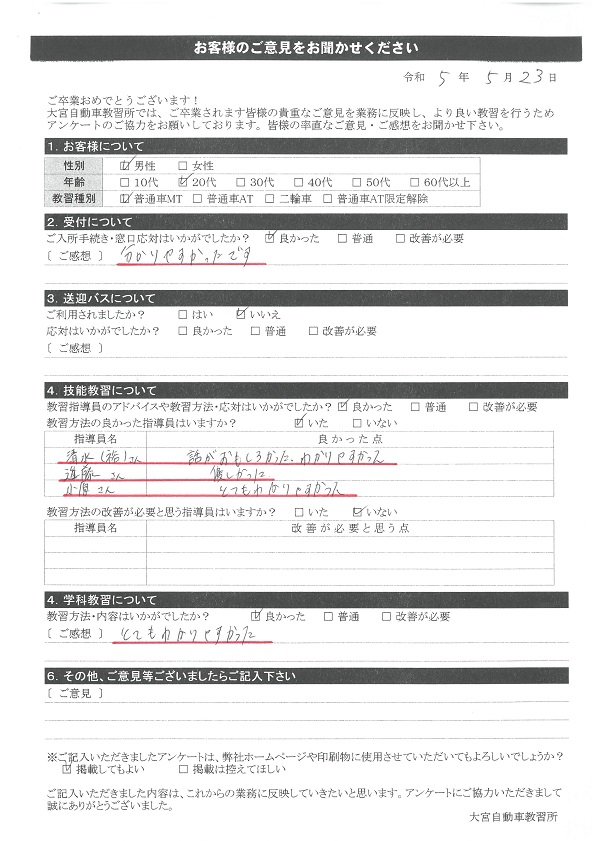 お客様のご意見をお聞かせください
令和 5 年 5 月 23 日
ご卒業おめでとうございます！
大宮自動車教習所では、ご卒業されます皆様の貴重なご意見を業務に反映し、より良い教習を行うため
アンケートのご協力をお願いしております。皆様の率直なご意見・ご感想をお聞かせ下さい。
1. お客様について
性別 ☑男性 □女性
年齢 □10代 ☑20代 □30代 □40代 □50代 □60代以上
教習種別 ☑普通車MT □普通車AT □二輪車 □普通車AT限定解除
2. 受付について
ご入所手続き・窓口応対はいかがでしたか？ ☑良かった □普通 □改善が必要
〔 ご感想 〕 分かりやすかったです
3. 送迎バスについて
ご利用されましたか？ □はい ☑いいえ
応対はいかがでしたか？ □良かった □普通 □改善が必要
〔 ご感想 〕
4. 技能教習について
教習指導員のアドバイスや教習方法・応対はいかがでしたか？ ☑良かった □普通 □改善が必要
教習方法の良かった指導員はいますか？ ☑いた □いない
指導員名 良かった点
清水(裕)さん 話がおもしろかった、わかりやすかった
進藤さん 優しかった
さん とてもわかりやすかった
教習方法の改善が必要と思う指導員はいますか？ □いた ☑いない
指導員名 改善が必要と思う点
4. 学科教習について
教習方法・内容はいかがでしたか？ ☑良かった □普通 □改善が必要
〔 ご感想 〕 とてもわかりやすかった
6. その他、ご意見等ございましたらご記入下さい
〔 ご意見 〕
※ご記入いただきましたアンケートは、弊社ホームページや印刷物に使用させていただいてもよろしいでしょうか？
☑掲載してもよい □掲載は控えてほしい
ご記入いただきました内容は、これからの業務に反映していきたいと思います。アンケートにご協力いただきまして
誠にありがとうございました。
大宮自動車教習所